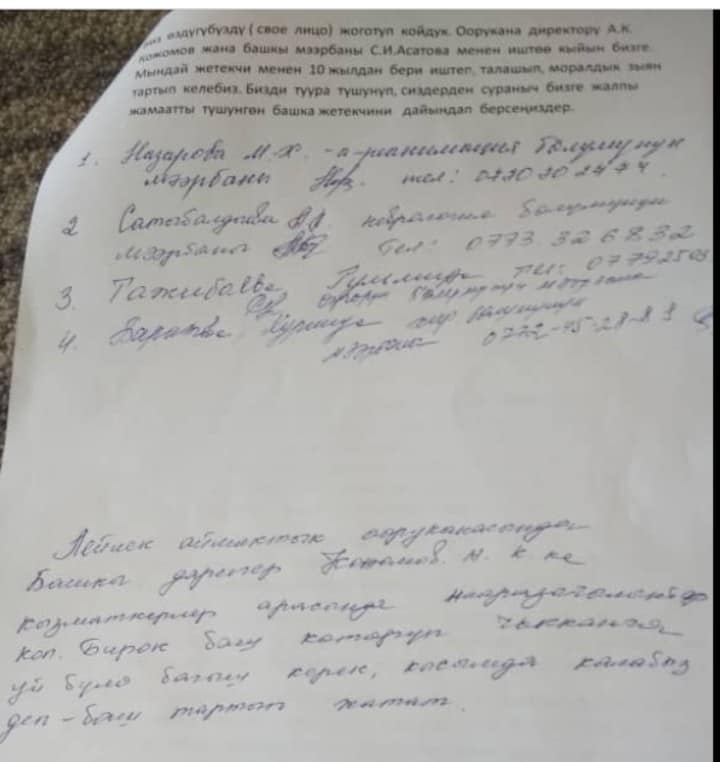 биз өздүгүбүздү ( свое лицо) жоготуп койдук. Оорукана директору А.К.
Кожомов жана башкы мээрбаны С.И.Асатова менен иштөө кыйын бизге.
Мындай жетекчи менен 10 жылдан бери иштеп, талашып, моралдык зыян
тартып келебиз. Бизди туура түшүнүп, сиздерден сураныч бизге жалпы
жамаатты түшүнгөн башка жетекчини дайындап берсеңиздер.
1. Назарова М.Х. -а-реанимация бөлүмүнүн
мээрбаны тел:
2 Сатыбалдыева неврология бөлүмүнүн
мээрбаны Тел: 0773 32 68 32
3. Тажибаева тел: 07792503
бөлүмүнүн мээрбаны
4. Хуршида хир бөлүмүнүн
мээрбаны 0772-45-28-89
Лейлек аймактык ооруканасында
Башкы дарыгер Кожомов. А. К ке
кызматкерлер арасында нааразычылыктар
көп. Бирок баш көтөрүп чыкканга
үй бүлө багыш керек, калабыз
деп - баш тартып жатат.